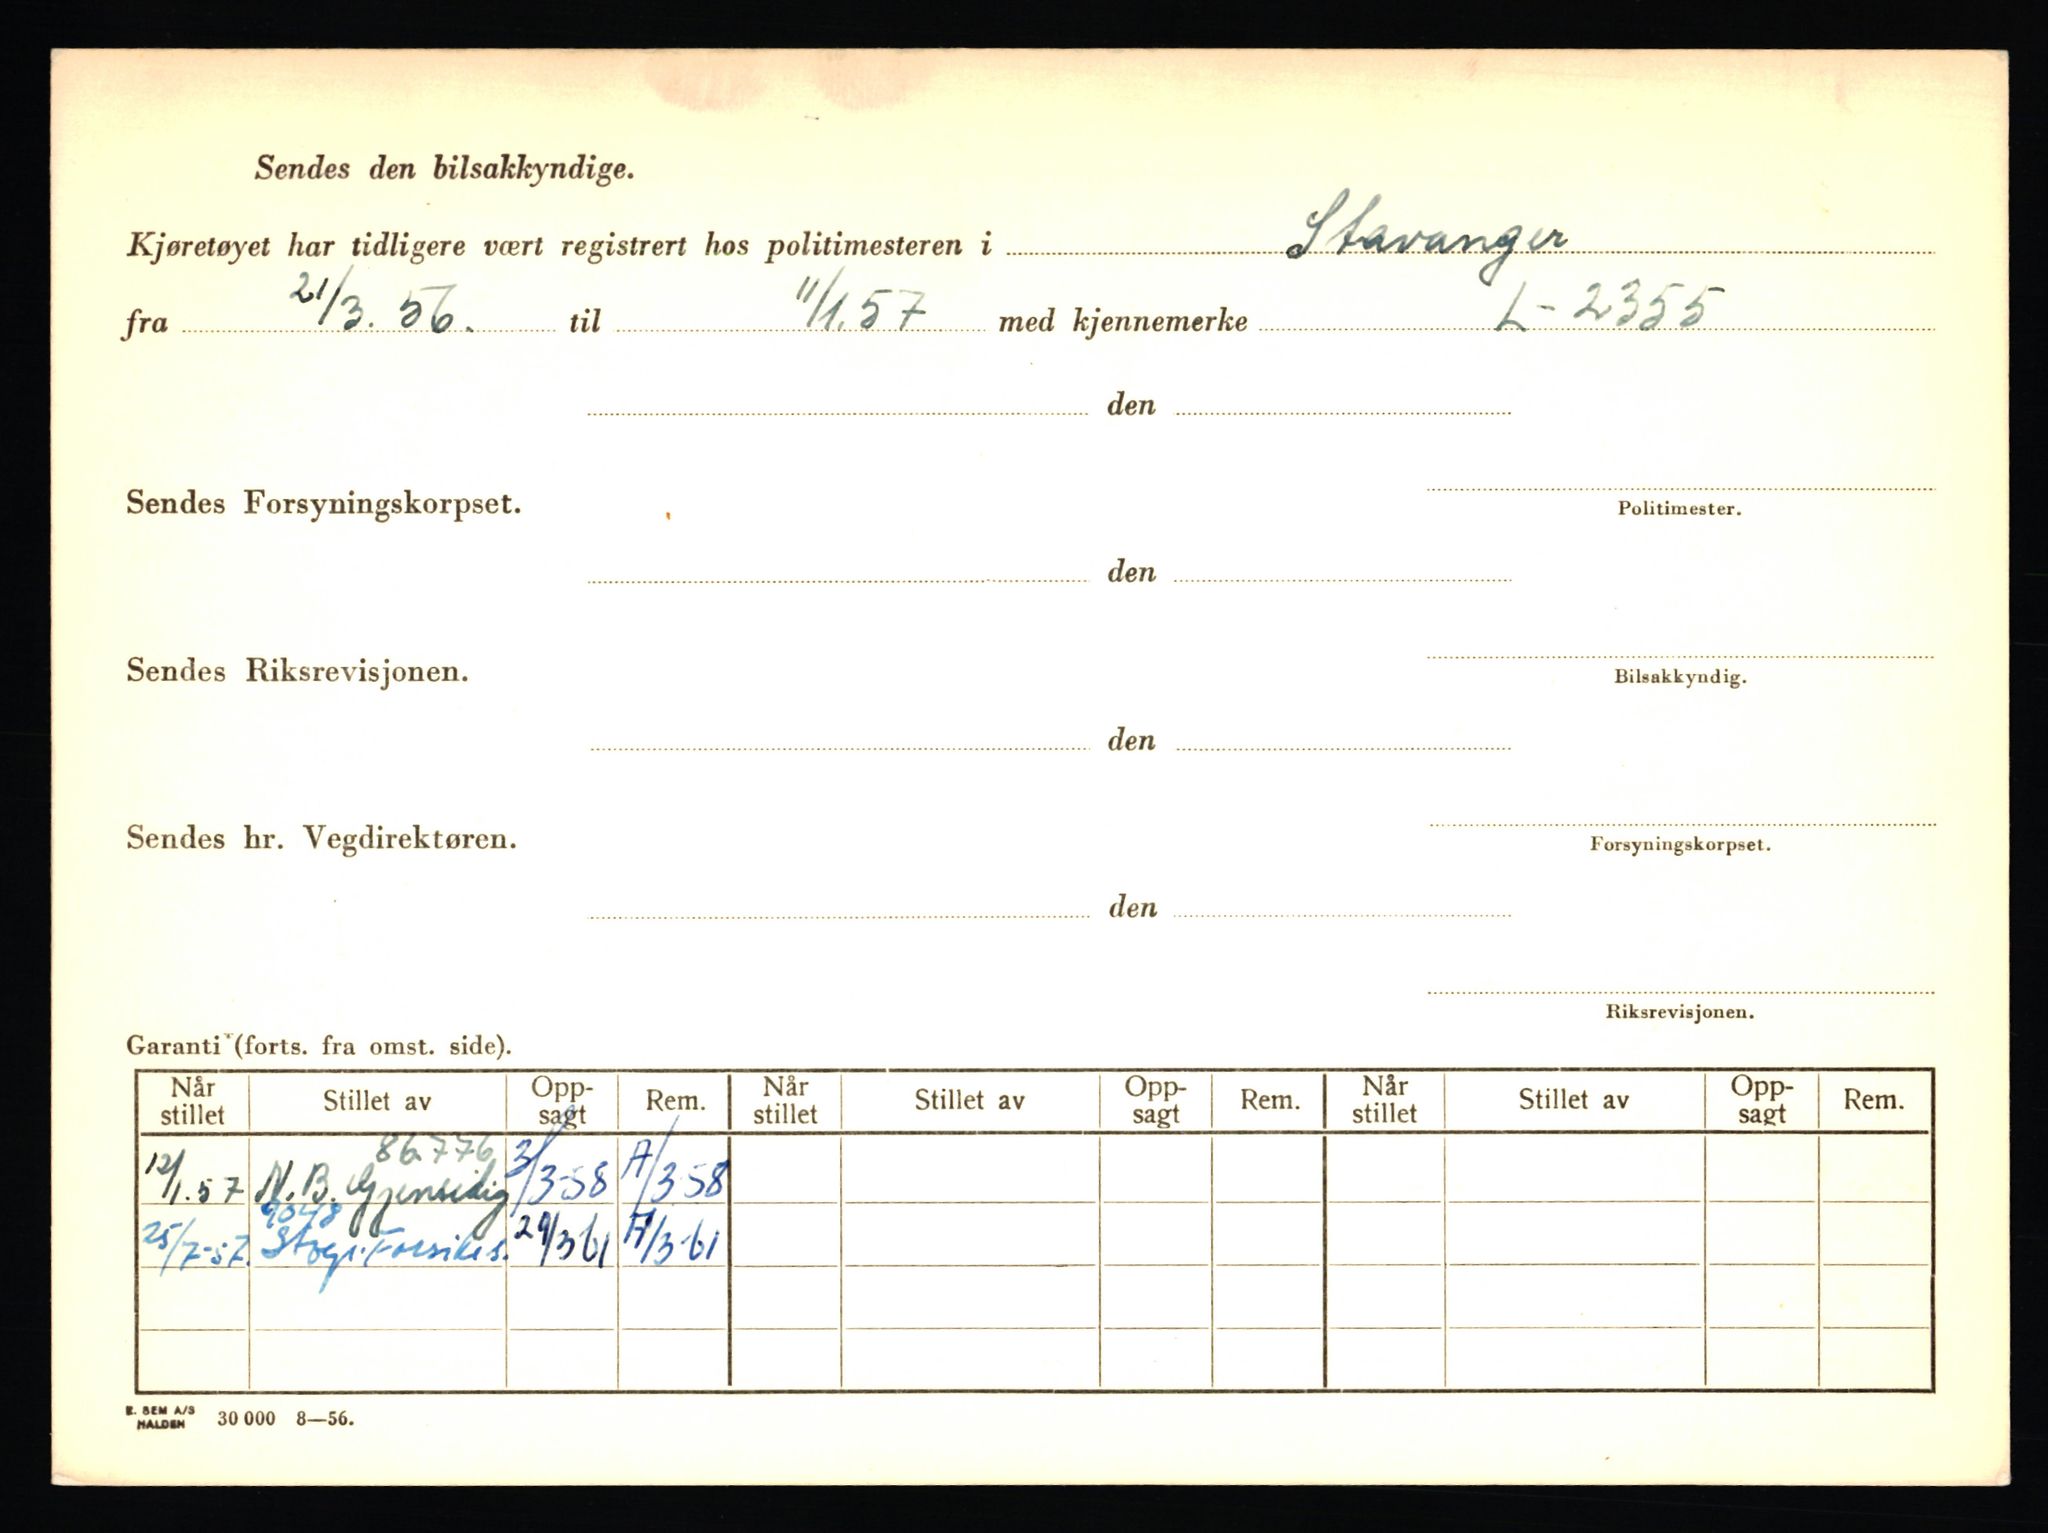 Sendes den bilsakkyndige.
Kjøretøyet har tidligere vært registrert hos politimesteren i Stavanger
fra 21/3. 56. til 11/1.57 med kjennemerke L-2355
den
Sendes Forsyningskorpset.
Politimester.
den
Sendes Riksrevisjonen.
Bilsakkyndig.
den
Sendes hr. Vegdirektøren.
Forsyningskorpset.
den
Riksrevisjonen.
Garanti (forts. fra omst. side).
Når stillet Stillet av Opp-sagt Rem. Når stillet Stillet av Opp-sagt Rem. Når stillet Stillet av Opp-sagt Rem.
86776
12/1.57 N.B. Gjensidig 3/3-58 A/3-58
9048
25/7-57. 29/3-61 A/3-61
E. SEM A/S
HALDEN 30 000 8—56.